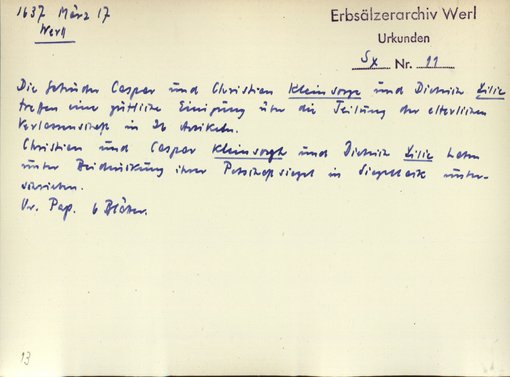 1637 März 17
Werl
Erbsälzerarchiv Werl
Urkunden
Sx Nr. 11
Die Gebrüder Caspar und Christian Kleinsorge und Dietrich Lilie
treffen eine gütliche Einigung über die Teilung der elterlichen
Verlassenschaft in 32 Artikeln.
Christian und Caspar Kleinsorge und Dietrich Lilie haben
unter Beidrückung ihrer Petschaftsiegel in Siegellack unter-
schrieben.
Ur. Pap. 6 Blätter.
13